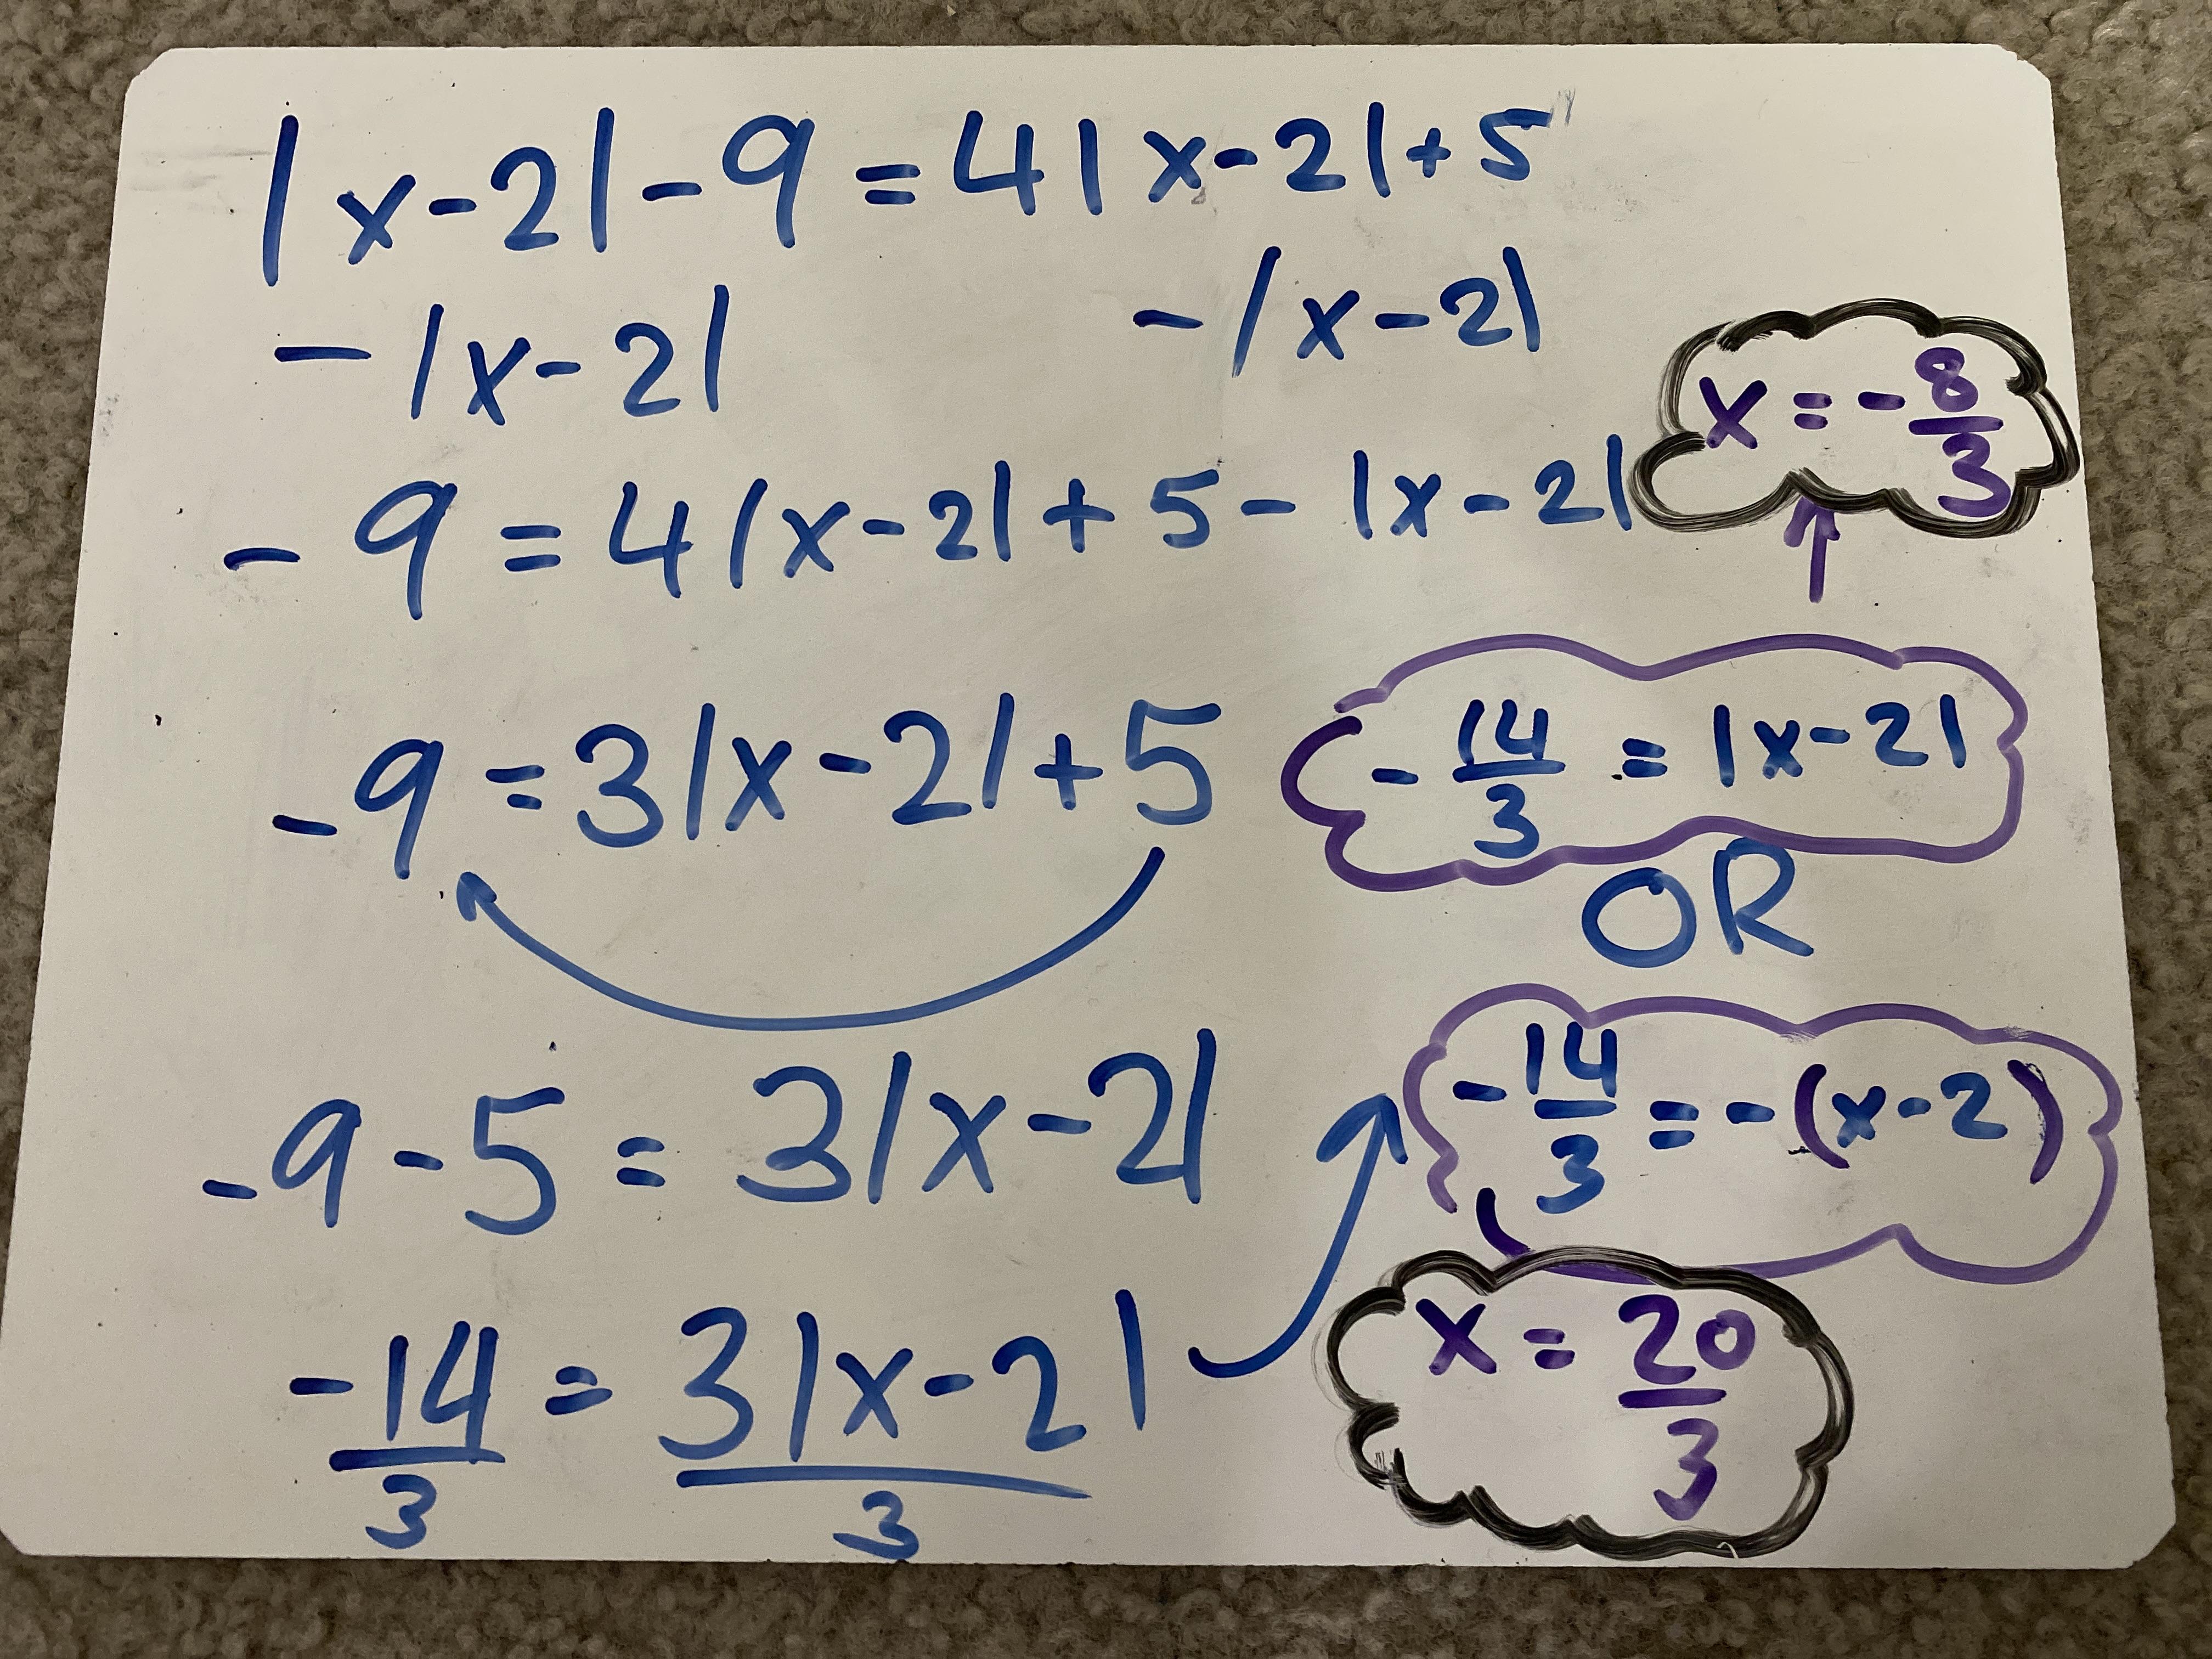 |x-2|-9=4|x-2|+5
-|x-2| -|x-2|
-9=4|x-2|+5-|x-2|
-9=3|x-2|+5
-9-5=3|x-2|
-14/3=3|x-2|/3
x=-8/3
-14/3=|x-2|
OR
-14/3=-(x-2)
x=20/3